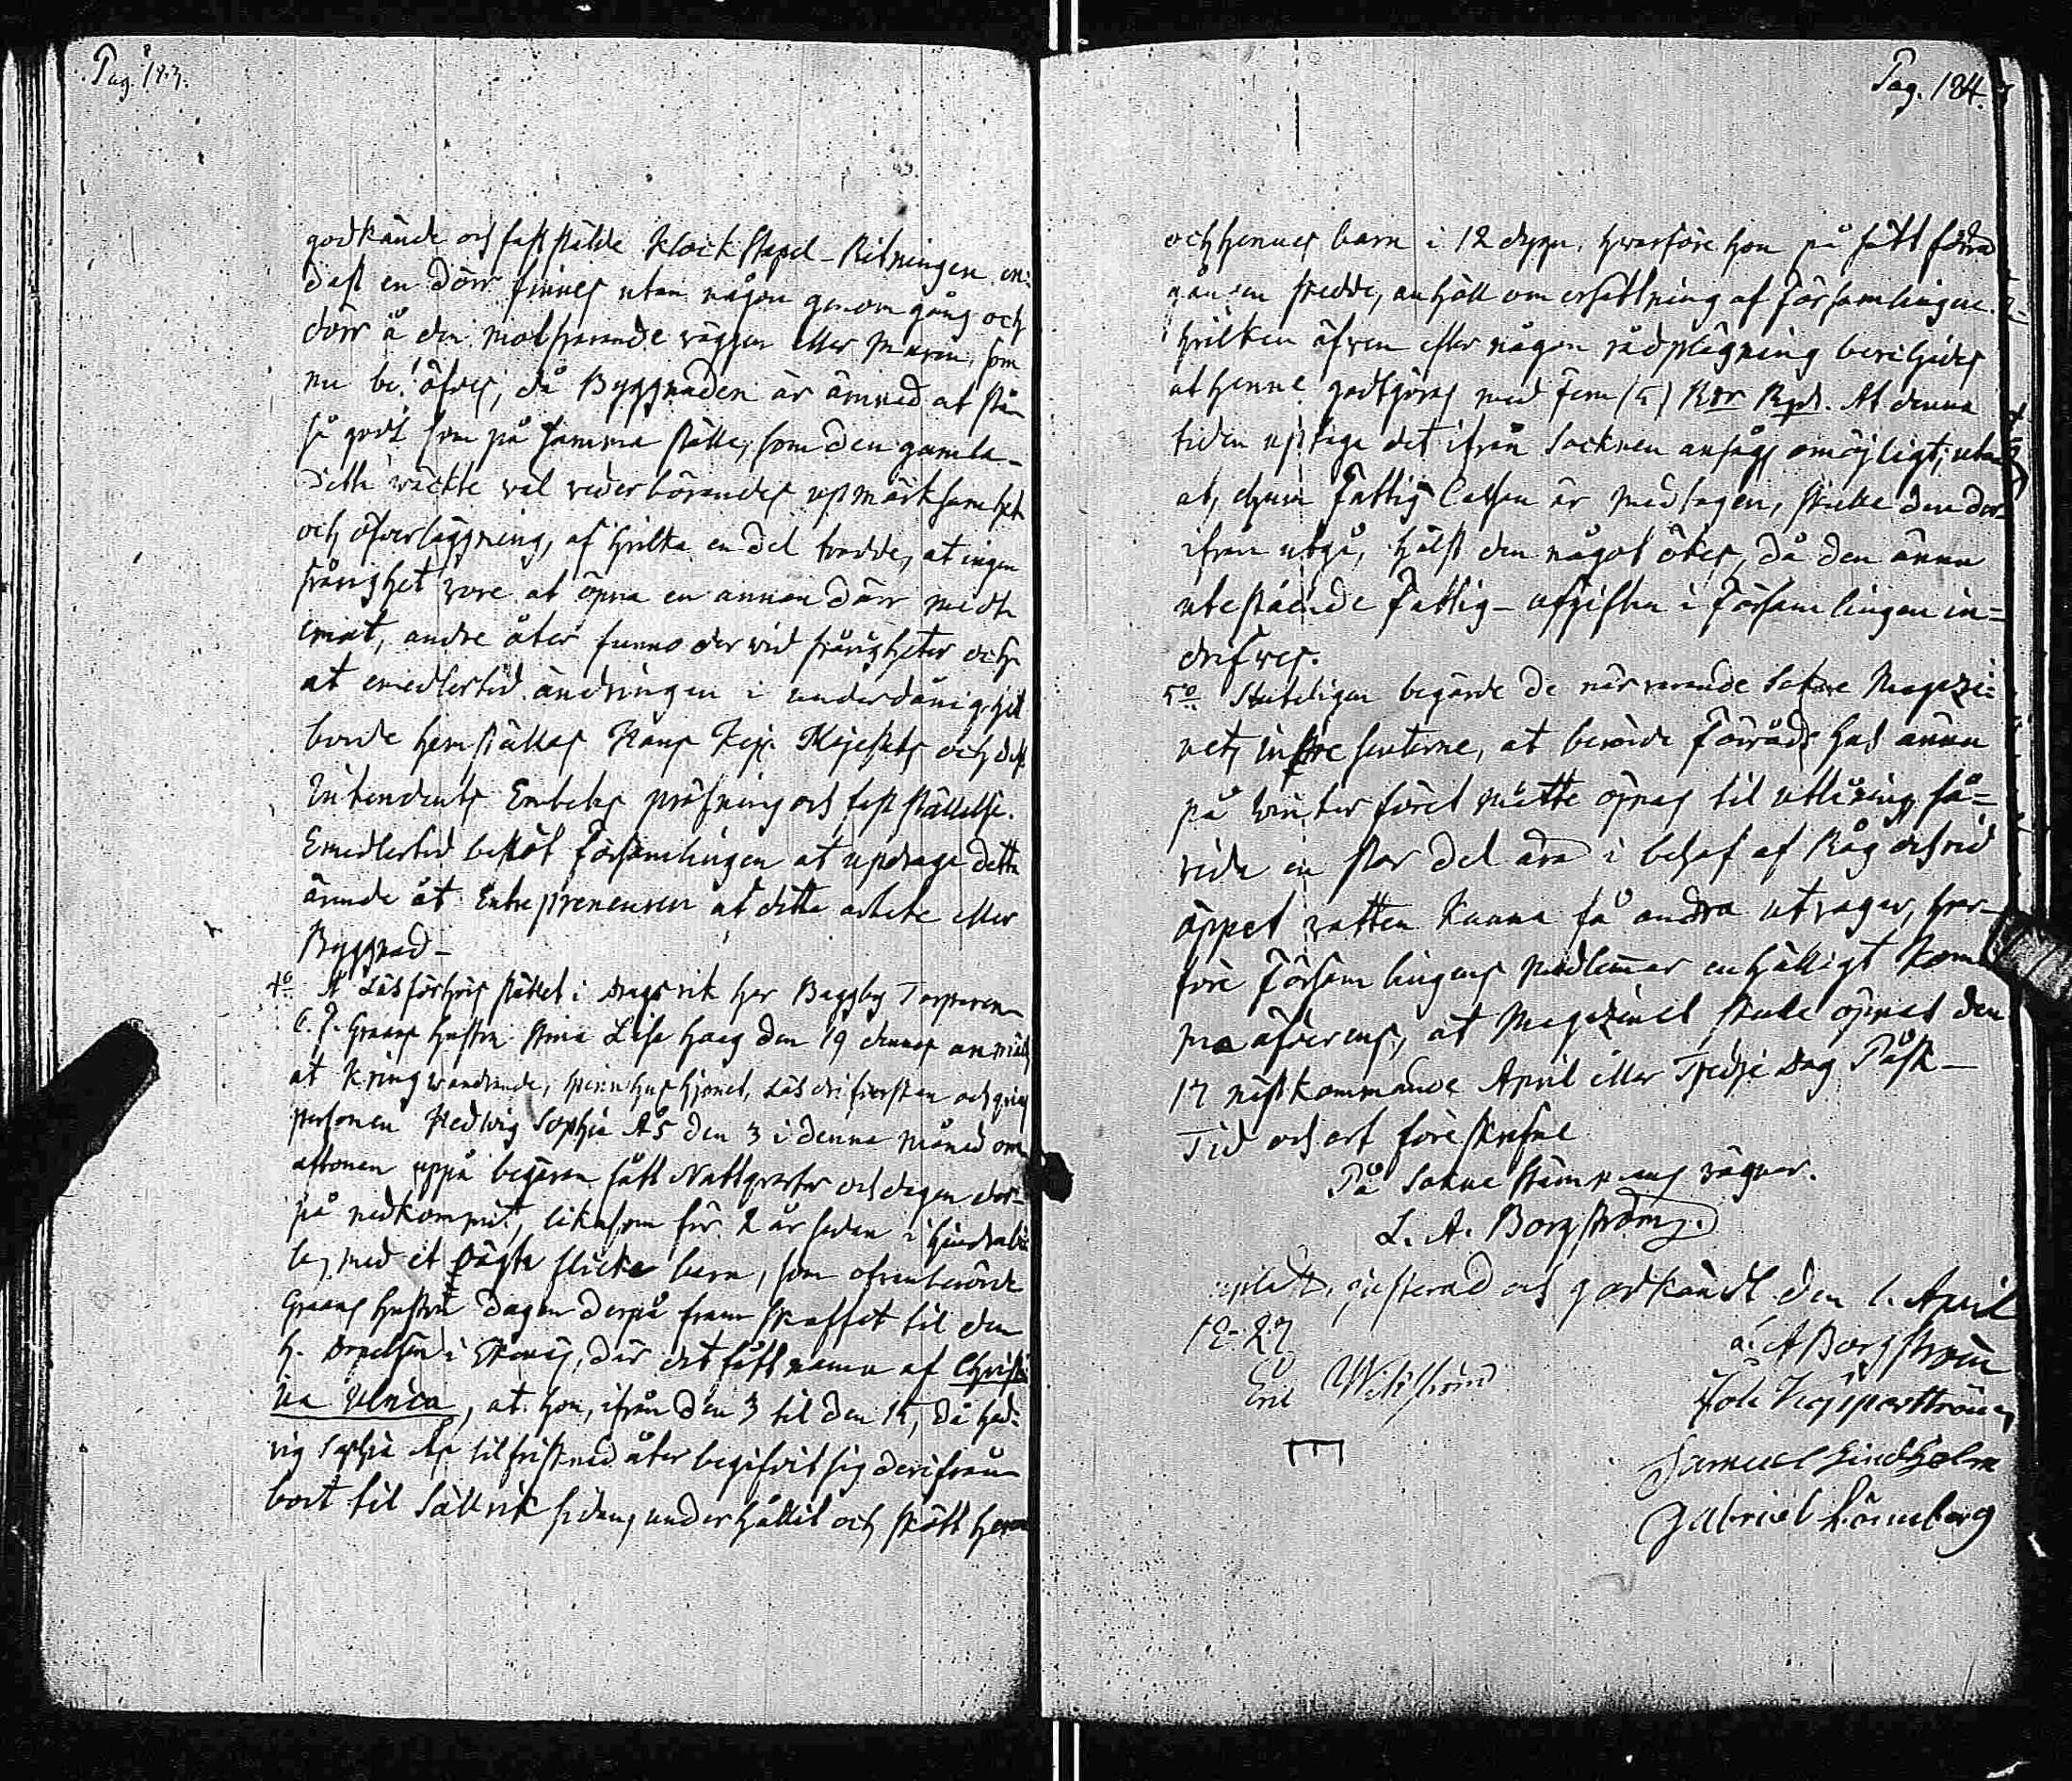 Pag. 183.
godkände och fastställde Klockstapel-Ritningen en-
dast en dörr finnes utan någon genomgång och
dörr å den motsvarande väggen eller muren, som
nu behöfves, då Byggnaden är ämnad at stå
så godt som på samma ställe, som den gamla -
Detta wäckte väl vederbörandes upmärksamhet
och öfverläggning, af hvilka en del trodde, at ingen
svårighet vore at öpna en annan dörr midt
emot, andre åter funno der vid svårigheter och
at emedlertid ändringen i underdånighet
borde hemställas Hans Kejs. Majestets och dess
Intendents Embetes pröfning och fastställelse.
Emedlertid beslöt Församlingen at updraga detta
ärende åt Entrepreneuren af detta arbete eller
Byggnad -
4o. Å Läsförhörs stället i Dragsvik har Baggby Torparen
C. J. Graans hustru Stina Lisa Haag den 19 dennes anmält
at kringwandrande, Läsdrifversken och
personen Hedwig Sophia Ås den 3 i denna månad om
aftonen uppå begäran fått Nattqvarter och dagen der-
på nedkommit, liksom för 2 år sedan i
by, med et oägta flicke barn, som ofvanberörde
Graans hustru dagen derpå framskaffat til den
H. i Ekenäs, där det fått namn af Christi
na Ulrica, at hon, ifrån den 3 til den 15, då Hed-
vig Sophia Ås tilfrisknad åter begifvit sig derifrån
bort til Sällvik sidan, underhållit och skött henne
Pag. 184.
och hennes barn i 12 dygn, hvarföre hon på sätt förra
gången skedde, anhöll om ersättning af Församlingen.
Hvilken äfven efter någon rådplägning beviljades
at henne godtgöras med fem (5) Rbr Rgds. At denna
tiden uptaga det ifrån Socknen ansågs omöjligt; utan
at, ehuru Fattig Cassan är medtagen, skulle den der
ifrån utgå, hälst den något ökes, då den ännu
utestående Fattig-afgiften i Församlingen in-
drifves.
5o. Sluteligen begärde de närvarande Sockne Magazi-
nets intressenterne, at berörde Förråds hus ännu
på winterföret måtte öpnas til utlåning, så-
vida en stor del äro i behof af Råg och vid
öppet vatten kunna få andra utvägar, hvar-
före Församlingens medlemmar enhälligt kom
mo öfverens, at Magazinet skulle öpnas den
17 nästkommande April eller Tredje Dag Påsk -
Tid och ort föreskrefne
På Sockne stämmans vägnar.
L. A. Borgström.
justerad och godkändt den 1. April
1827
L. A Borgström
Erik Wikström
Samuel Lindholm
Gabriel Lönnberg